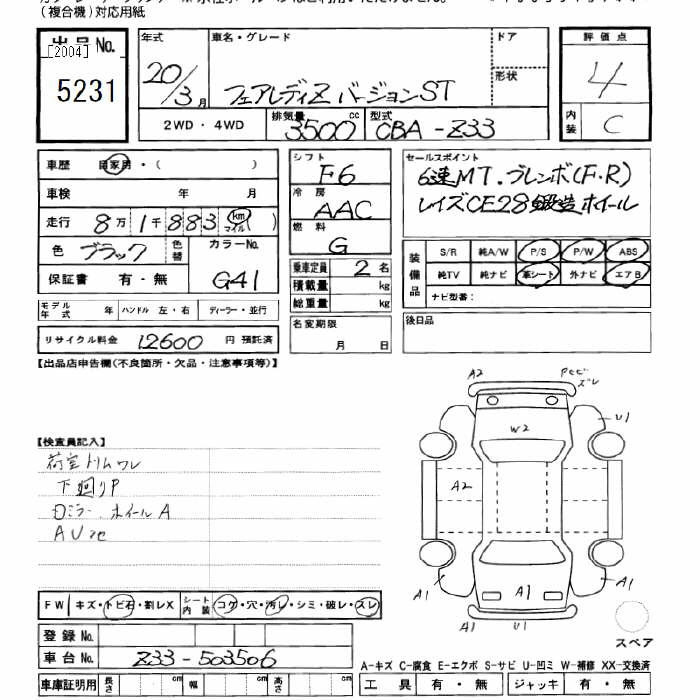 (複合機)対応用紙
出品 No.
[2004]
5231
年式
20/3月
車名・グレード
フェアレディZ バージョンST
ドア
形状
2WD・4WD
排気量
3500
cc
型式
CBA-Z33
評価点
4
内装
C
車歴 自家用・( )
車検 年 月
走行 8万 1千 883 km マイル ( )
色 ブラック 色替 カラーNo.
保証書 有・無 G41
モデル年式 年 ハンドル 左・右 ディーラー・並行
リサイクル料金 12600 円 預託済
シフト
F6
冷房
AAC
燃料
G
乗車定員 2 名
積載量 kg
総重量 kg
名変期限
月 日
セールスポイント
6速MT.ブレンボ(F.R)
レイズCE28鍛造ホイール
装備品
S/R 純A/W P/S P/W ABS
純TV 純ナビ 革シート 外ナビ エアB
ナビ型番:
後日品
【出品店申告欄(不良箇所・欠品・注意事項等)】
【検査員記入】
荷室トリムワレ
下廻りP
ミラー.ホイールA
AUヌセ
A2
ズレ
U1
W2
A2
A1
A1
A1
A1
U1
スペア
FW キズ・トビ石・割レX シート内装 コゲ・穴・汚レ・シミ・破レ・スレ
登録 No.
車台 No. Z33-503506
車庫証明用 長さ cm 幅 cm 高さ cm
A-キズ C-腐食 E-エクボ S-サビ U-凹ミ W-補修 XX-交換済
工具 有・無 ジャッキ 有・無